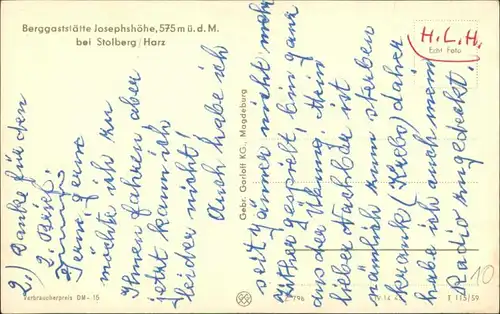 Berggaststätte Josephshöhe, 575 m ü. d. M.
bei Stolberg/Harz
H. L. H.
Echt Foto
2.) Danke für den
2. Brief.
gern
möchte ich zu
Ihnen fahren aber
jetzt kann ich
leider nicht!
Auch habe ich
seit Jänner nicht mehr
Zither gespielt, bin ganz
aus der Übung. Mein
lieber Nachbar ist
nämlich zum sterben
krank (Krebs) daher
habe ich auch mein
Radio zugedeckt.
Gebr. Garloff KG., Magdeburg
Verbraucherpreis DM -.15
T 115/59
10